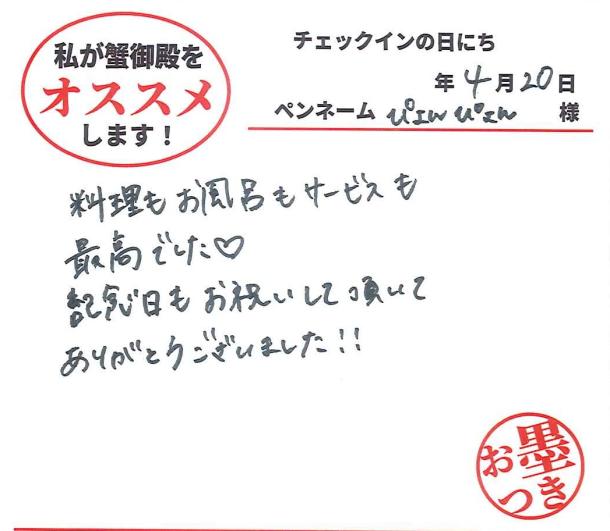 私が蟹御殿を
オススメ
します！
チェックインの日にち
年4月20日
ペンネーム ぴょんぴょん 様
料理もお風呂もサービスも
最高でした♡
記念日もお祝いして頂いて
ありがとうございました!!
お墨
つき